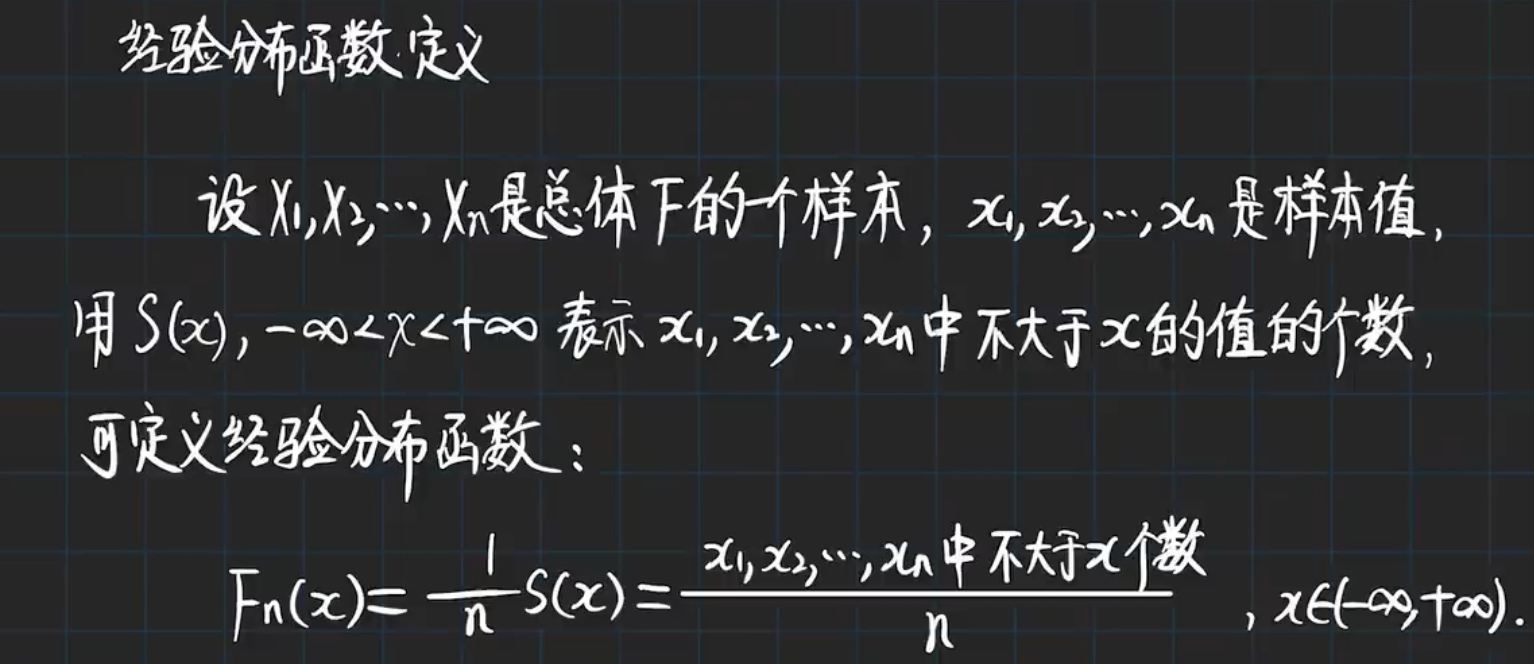 经验分布函数定义
设X₁,X₂,…,Xₙ是总体F的一个样本, x₁,x₂,…,xₙ是样本值,
用S(x),-∞<x<+∞表示x₁,x₂,…,xₙ中不大于x的值的个数,
可定义经验分布函数:
Fₙ(x)=1/n S(x)=x₁,x₂,…,xₙ中不大于x个数/n , x∈(-∞,+∞).